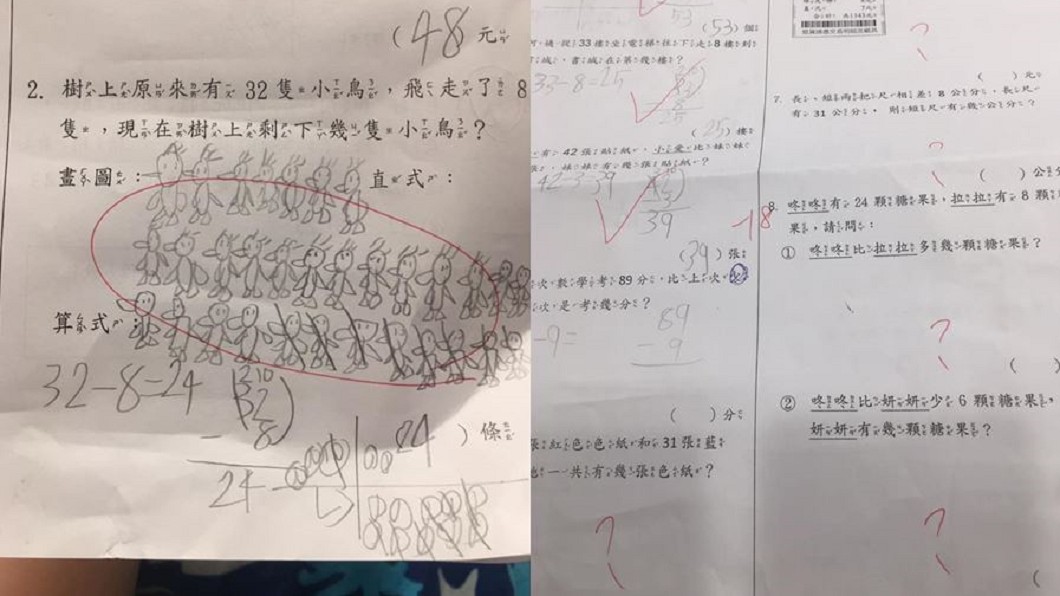 (48 元
2. 樹上原來有 32 隻小鳥，飛走了 8
隻，現在樹上剩下幾隻小鳥？
畫圖： 直式：
算式：
32-8=24
32
- 8
24
24 ) 條
53
(53) 個
33 樓坐電梯往下走 8 樓到
33-8=25
25
(25) 樓
有 42 張貼紙，小愛比妹妹
張，妹妹有幾張貼紙？
42-3=39
39
-18
(39) 張
次數學考 89 分，比上次
次是考幾分？
-9=
89
- 9
( ) 分
張紅色色紙和 31 張藍
一共有幾張色紙？
?
?
( ) 元
7. 長、短兩把尺相差 8 公分，長尺
有 31 公分，則短尺有幾公分？
?
( ) 公分
8. 咚咚有 24 顆糖果，拉拉有 8 顆
果，請問：
① 咚咚比拉拉多幾顆糖果？
?
( )
② 咚咚比妍妍少 6 顆糖果，
妍妍有幾顆糖果？
?
(